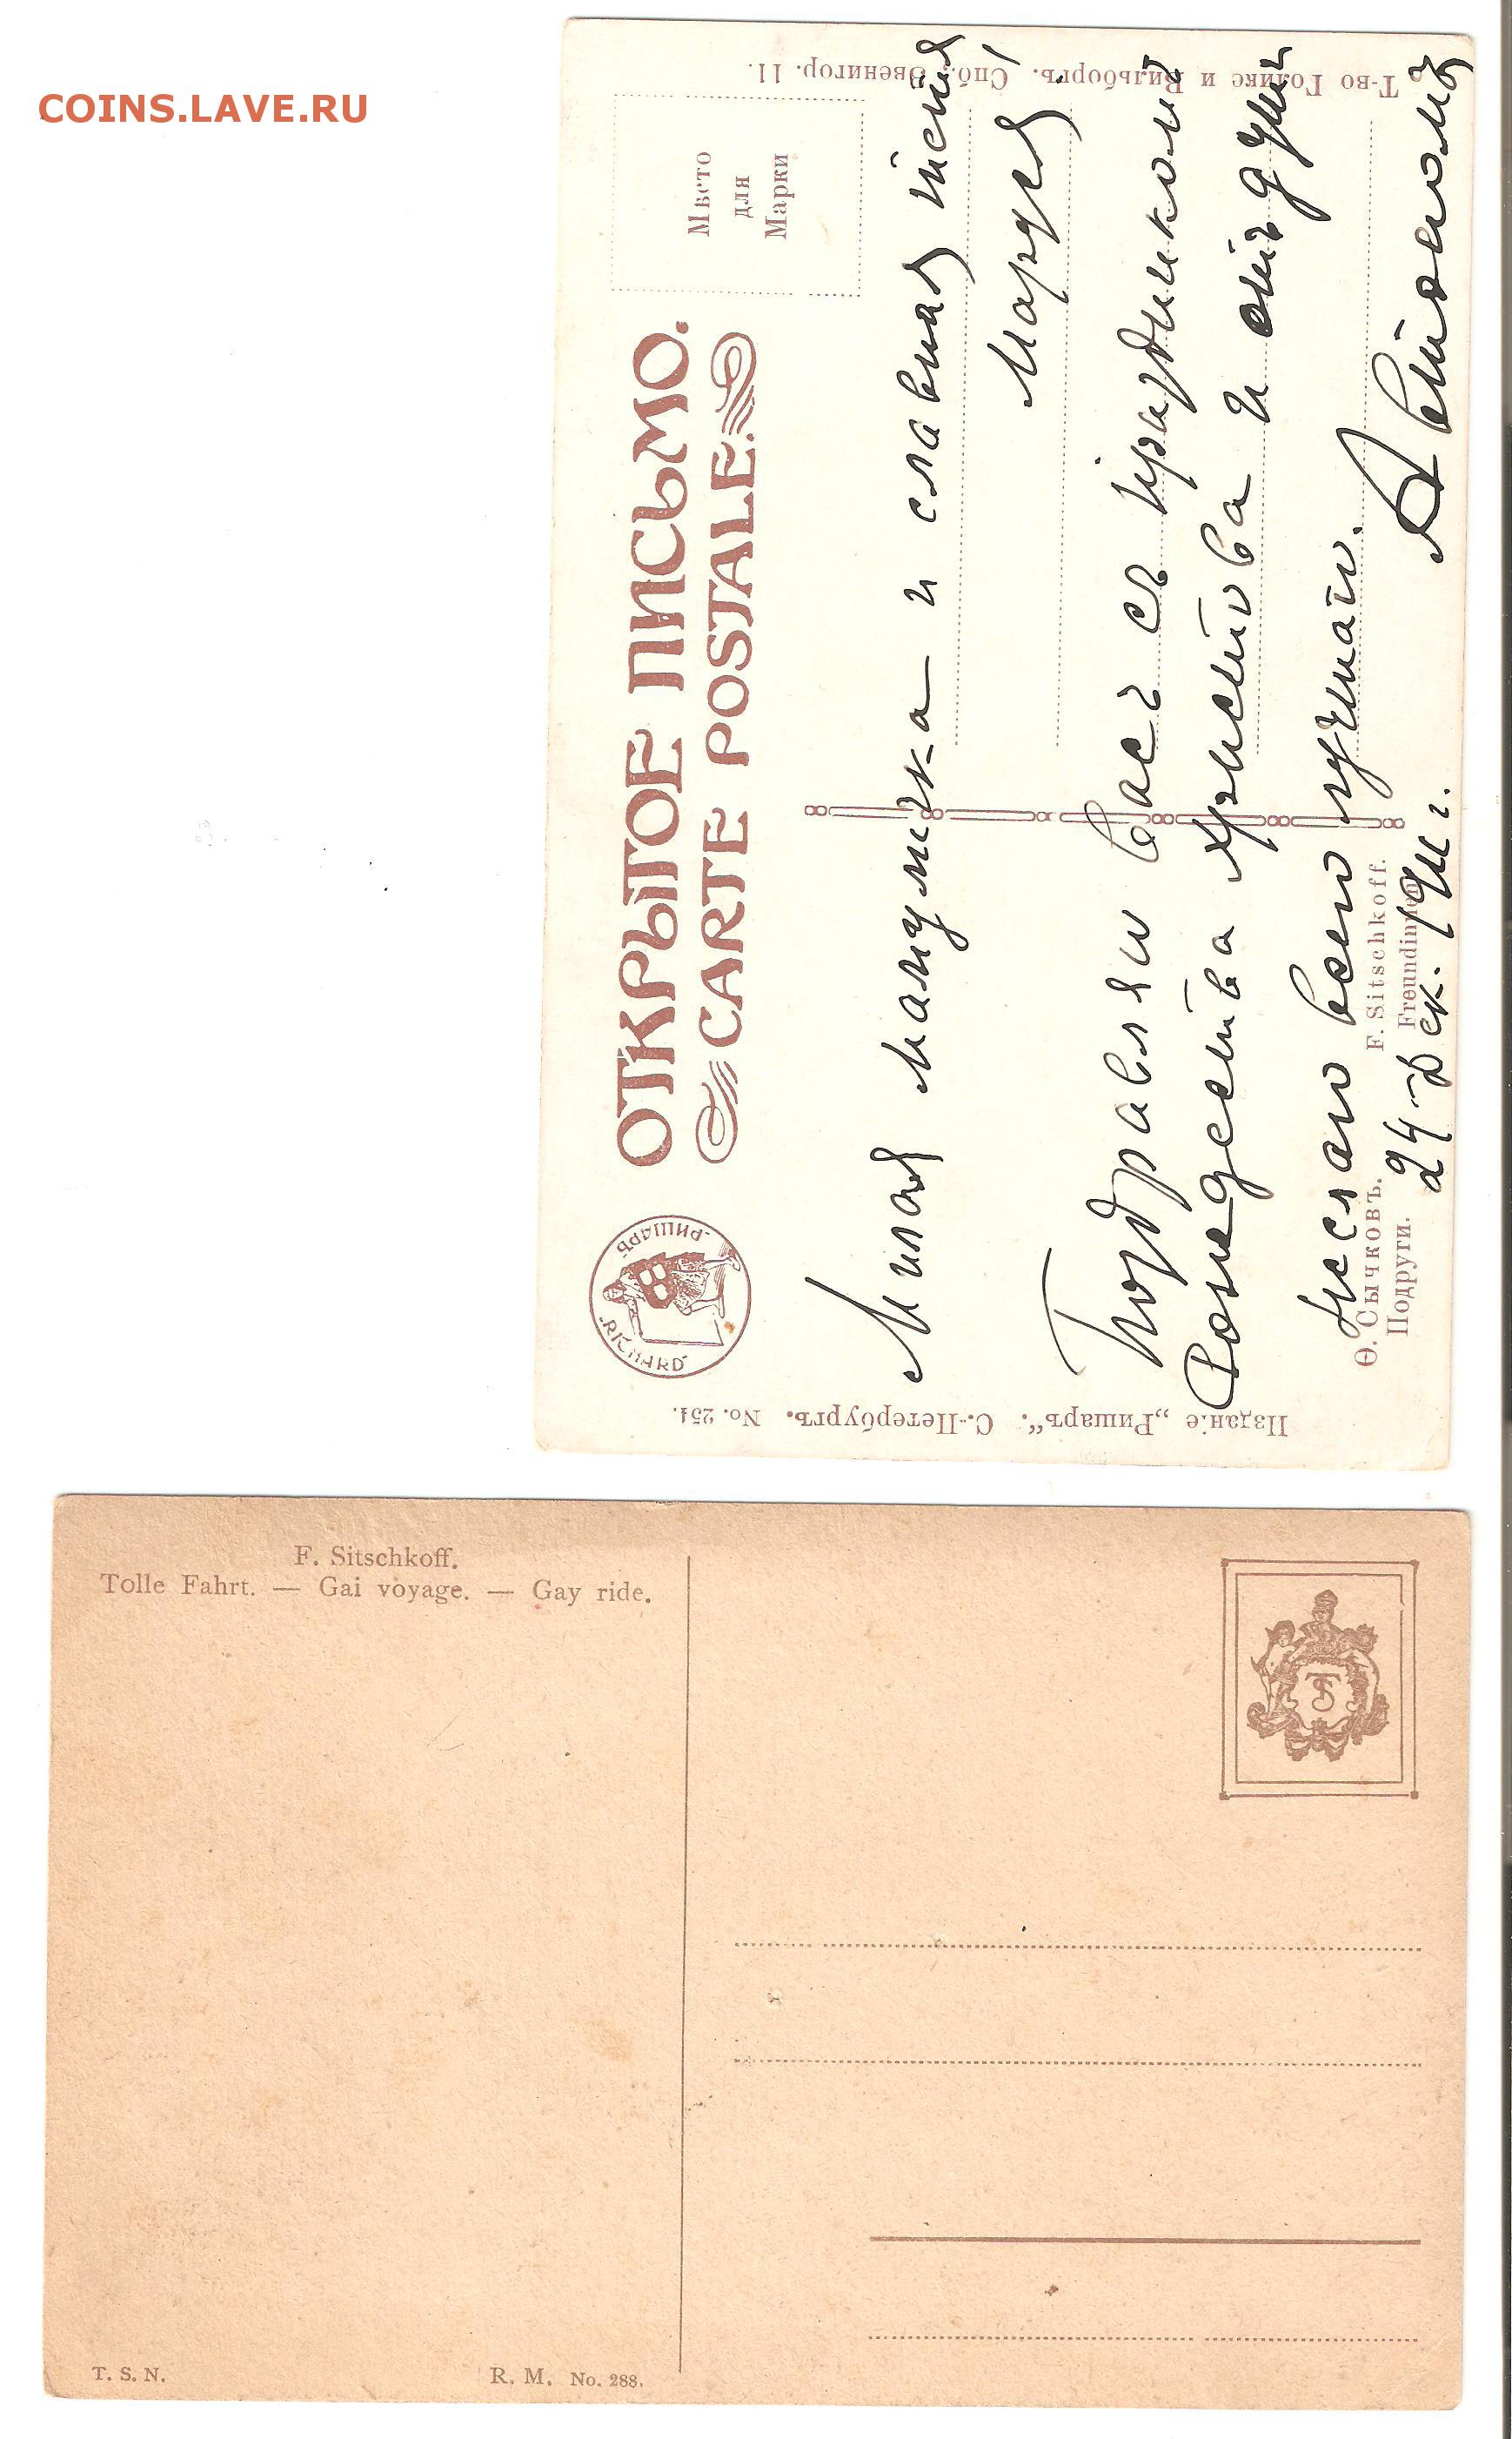 COINS.LAVE.RU
ОТКРЫТОЕ ПИСЬМО.
CARTE POSTALE.
„RICHARD“ „РИШАРЪ“
Мѣсто
для
Марки
Милая мамулика и славная тетя
Маруся!
Поздравляю васъ съ праздником
Рождества Христова и отъ души
желаю всего лучшаго.
24-Дек. 1911г.
Ѳ. Сычковъ. F. Sitschkoff.
Подруги. Freundinnen
Изданіе „Ришаръ“. С.-Петербургъ. No. 254.
Т-во Голике и Вильборгъ. Спб. Звенигор. 11.
F. Sitschkoff.
Tolle Fahrt. — Gai voyage. — Gay ride.
T. S. N.
R. M. No. 288.